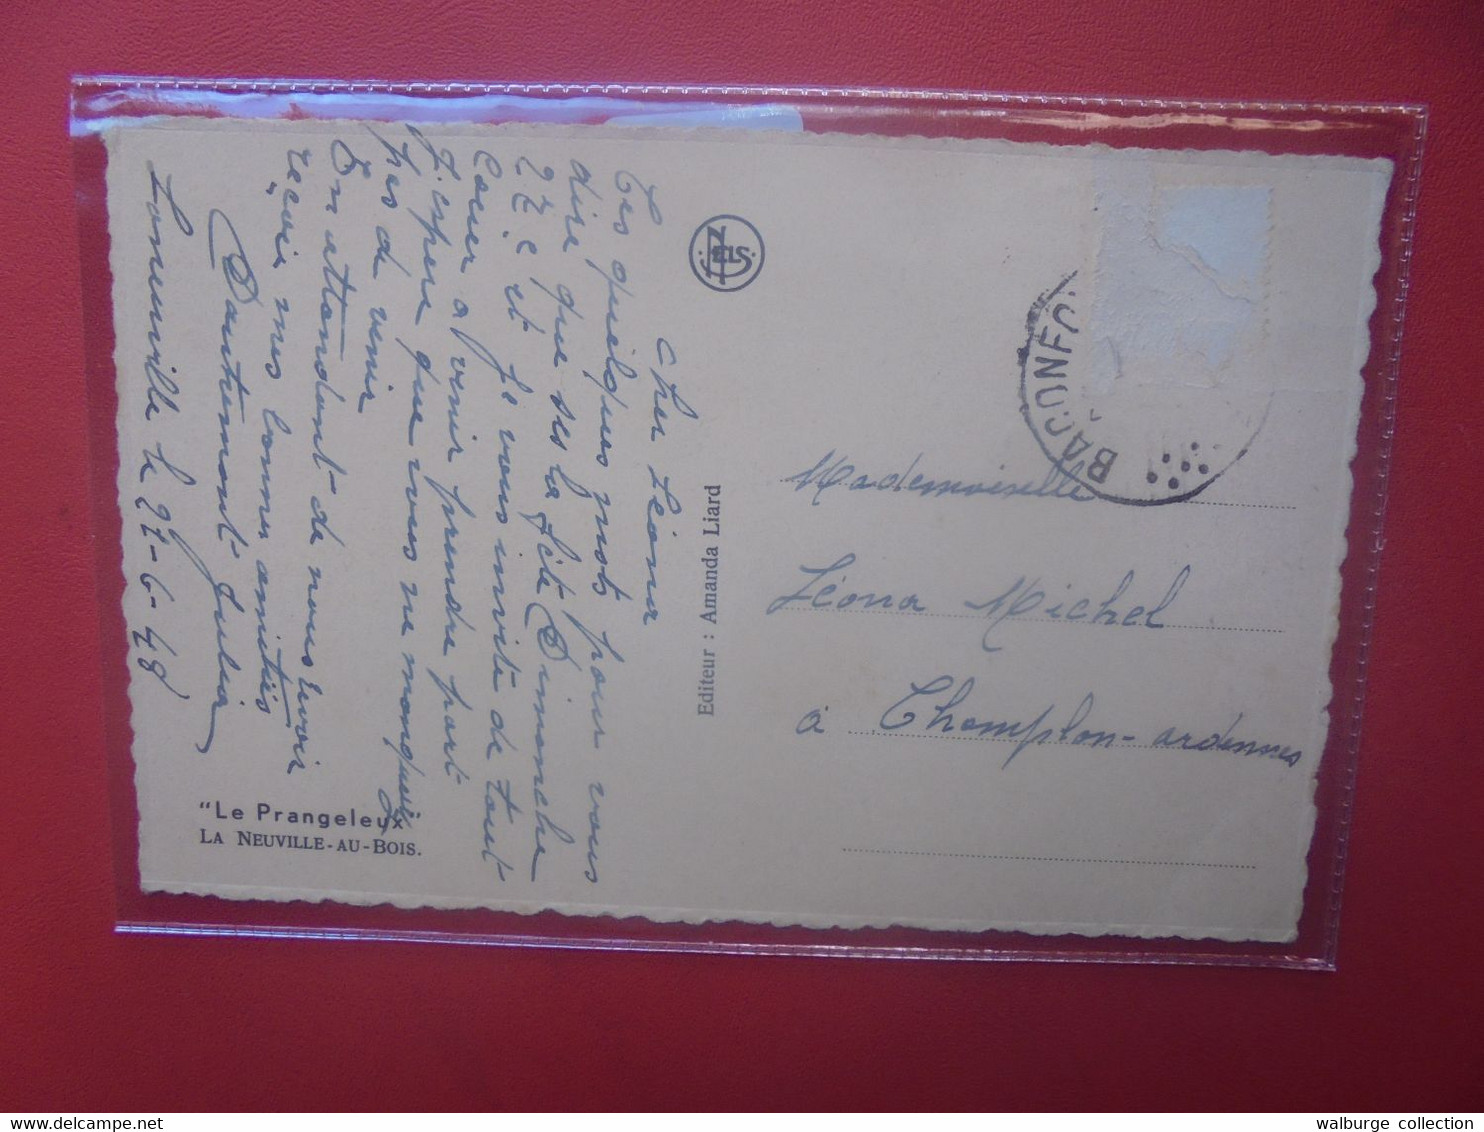 Cher Léona
Ces quelques mots pour vous
dire que ses la fête Dimanche
27. et je vous invite de tout
Cœur a venir prendre part
J'espère que vous ne manquerez
pas de venir
En attendant de nous
recevoir mes bonnes amitiés
Dautremont Julia
le 27-6-48
"Le Prangeleux"
LA NEUVILLE-AU-BOIS.
Editeur : Amanda Liard
NELS
BACONFO
Mademoiselle
Léona Michel
à Champlon-ardennes
walburge collection